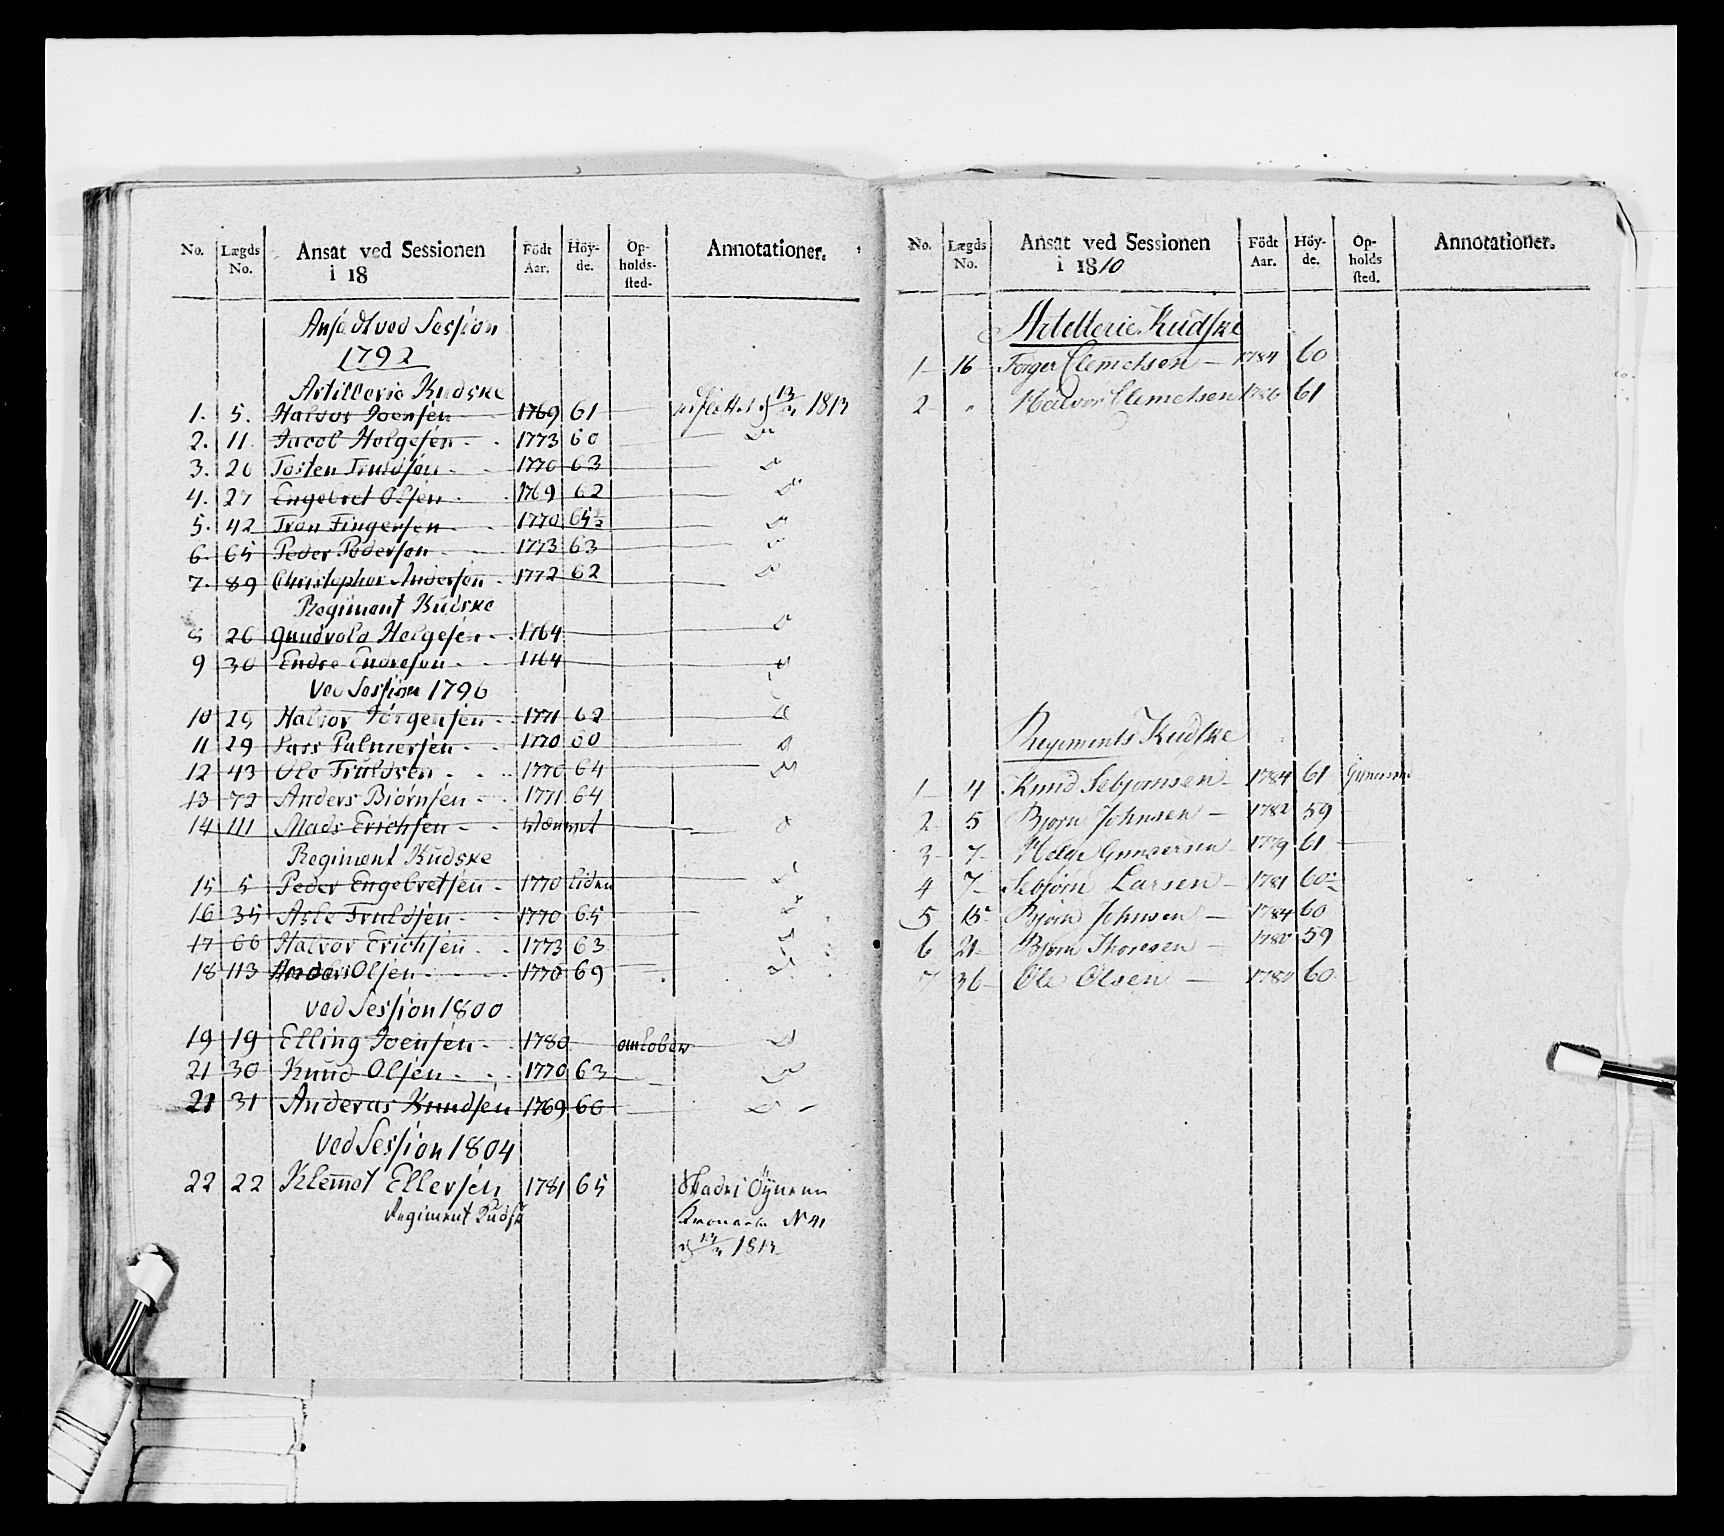 No. Lægds No. Ansat ved Sessionen i 18 Födt Aar. Höyde. Opholdssted. Annotationer.
Ansadt ved Session
1792
Artillerie Kudske
1. 5. Halvor Joensen 1769 61 13/3 1813
2. 11. Jacob Helgesen 1773 60 D°
3. 26 Tosten Truldsen 1770 63 D°
4. 27 Engebret Olsen 1769 62 D°
5. 42 Tron Fingersen 1770 65½ D°
6. 65 Peder Pedersen 1773 63 D°
7. 89 Christopher Andersen 1772 62 D°
Regiment Kudske
8 26 Gundvold Helgesen 1764 D°
9 30 Endre Endresen 1764 D°
Ved Session 1796
10 29 Halvor Jörgensen 1771 62 D°
11 29 Lars Palmersen 1770 60 D°
12 43 Ole Truldsen 1770 64 D°
13 72 Anders Biörnsen 1771 64
14 111 Mads Erichsen D°
Regiment Kudske
15 5 Peder Engebretsen 1770 liden D°
16 35 Asle Truldsen 1770 65 D°
17 66 Halvor Erichsen 1773 63 D°
18 113 Anders Olsen 1770 69 D°
ved Session 1800
19 19 Elling Joensen 1780 omlöben D°
21 30 Knud Olsen 1770 63 D°
21 31 Anderas Knudsen 1769 60 D°
Ved Session 1804
22 22 Klemet Ellersen 1781 65
Regiment Kudsk No 41
13/3 1813
No. Lægds No. Ansat ved Sessionen i 1810 Födt Aar. Höyde. Opholdssted. Annotationer.
Artellerie Kudske
1 16 Torger Clemetsen 1784 60
2 " Halvor Clemetsen 1786 61
Regiments Kudske
1 4 Knud Sebjørnsen 1784 61
2 5 Bjørn Johnsen 1782 59
3 7 Helge Gundersen 1779 61
4 7 Sebjørn Larsen 1781 60
5 15 Bjørn Johnsen 1784 60
6 21 Bjørn Thoresen 1780 59
7 36 Ole Olsen 1780 60